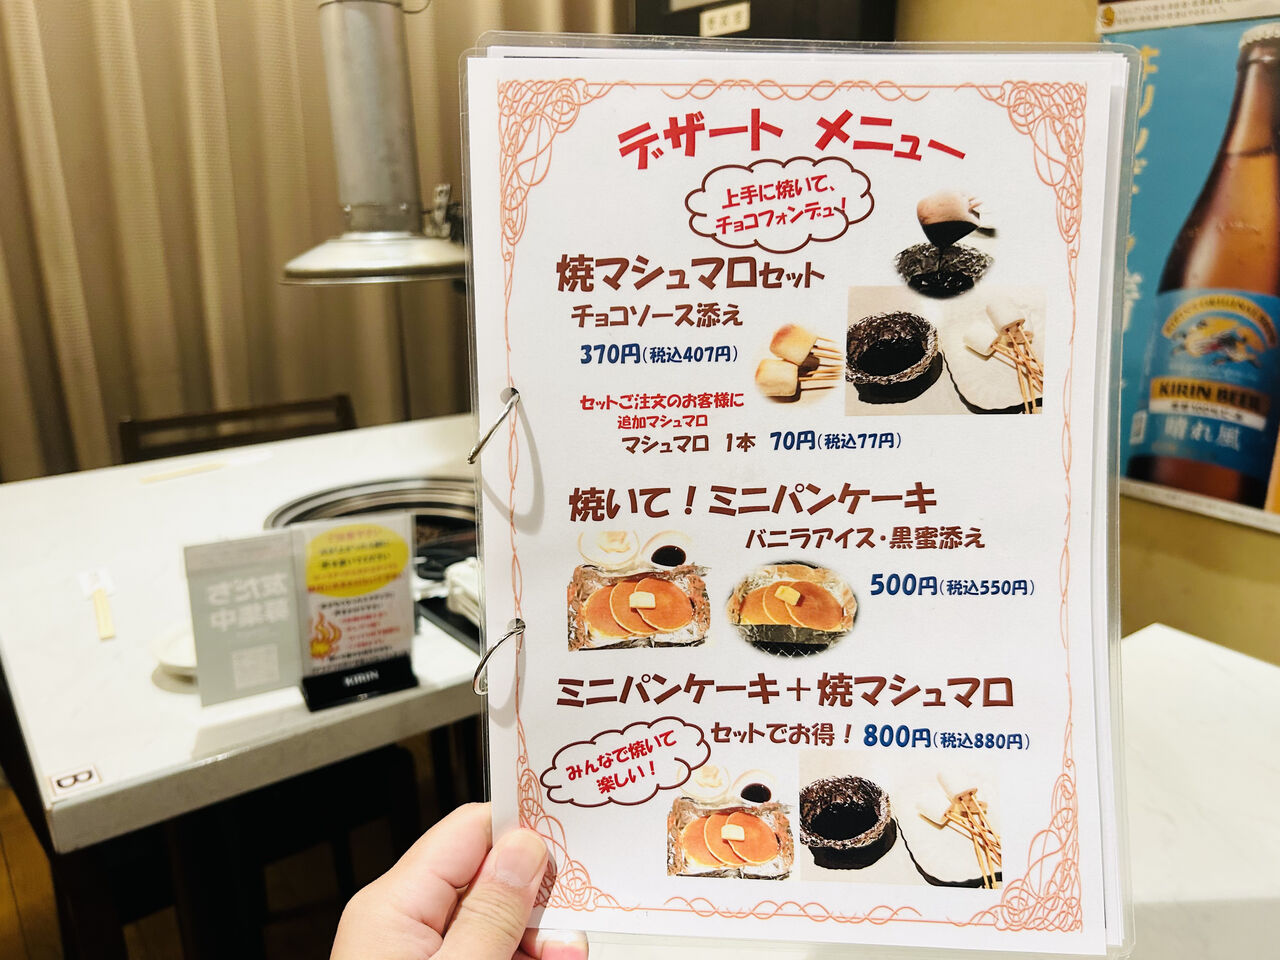 デザート メニュー
上手に焼いて、
チョコフォンデュ！
焼マシュマロセット
チョコソース添え
370円(税込407円)
セットご注文のお客様に
追加マシュマロ
マシュマロ 1本 70円(税込77円)
焼いて！ミニパンケーキ
バニラアイス・黒蜜添え
500円(税込550円)
ミニパンケーキ＋焼マシュマロ
セットでお得！ 800円(税込880円)
みんなで焼いて
楽しい！
友だち
募集中
KIRIN
B
KIRIN BEER
晴れ風